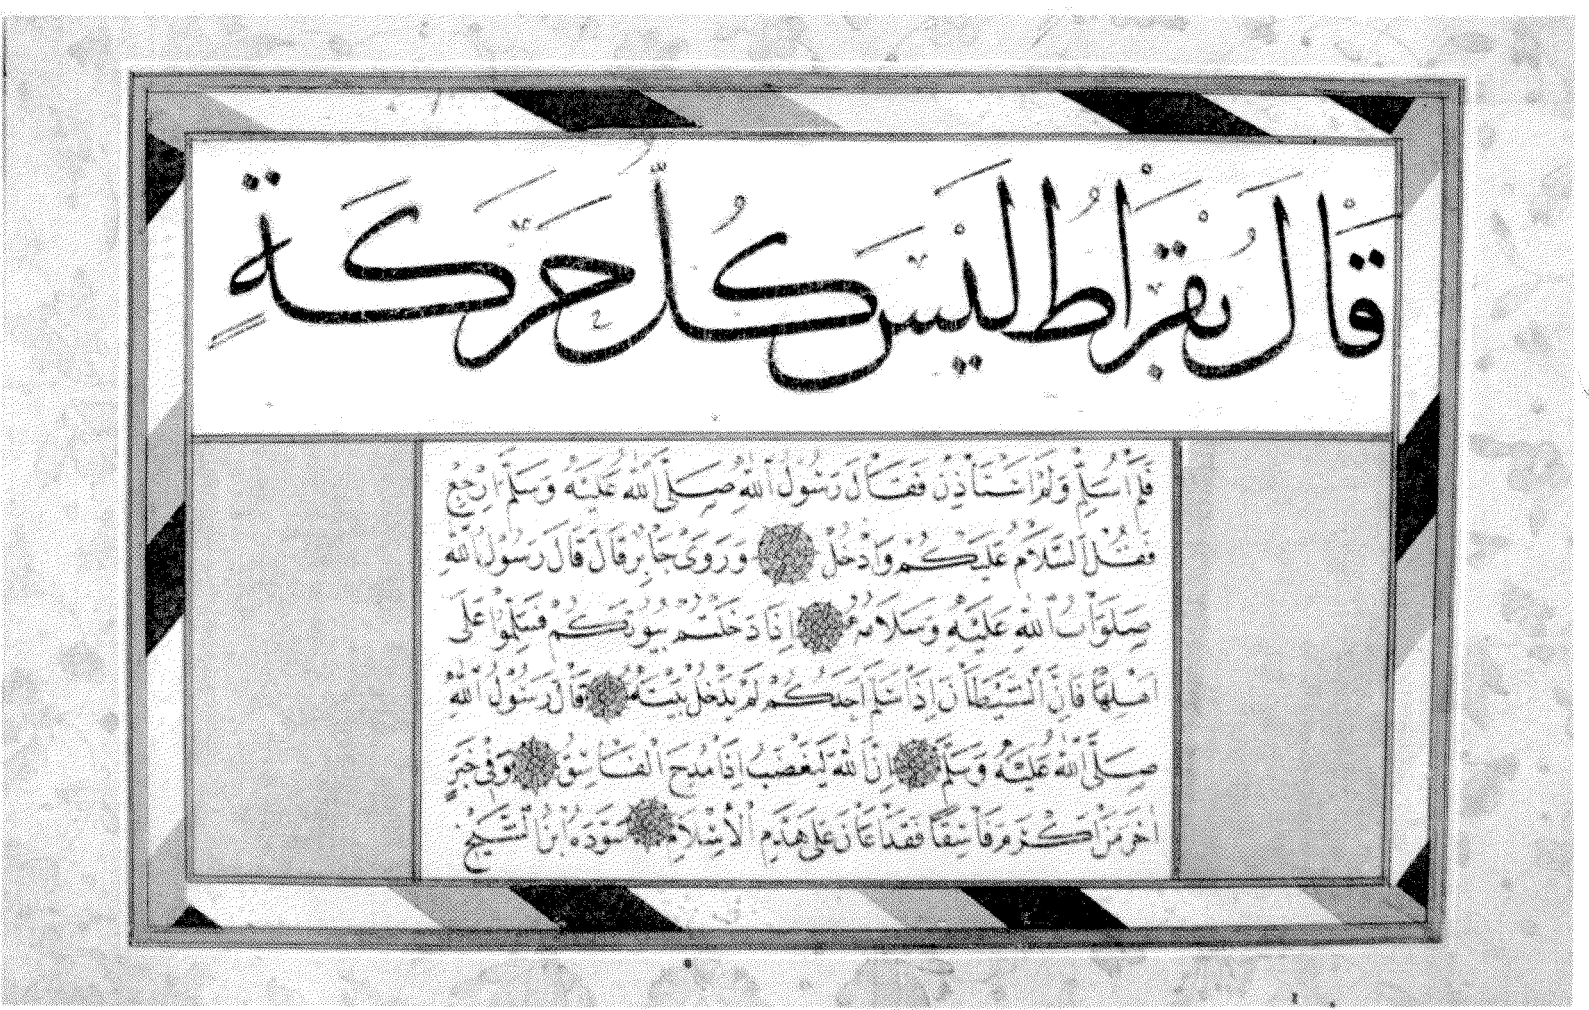 قَالَ بُقْرَاطُ لَيْسَ كُلُّ حَرَكَةٍ
فَلَمْ أُسَلِّمْ وَلَمْ أَسْتَأْذِنْ فَقَالَ رَسُولُ اللهِ صَلَّى اللهُ عَلَيْهِ وَسَلَّمَ ارْجِعْ
فَقُلِ السَّلَامُ عَلَيْكُمْ وَادْخُلْ وَرَوَى جَابِرٌ قَالَ قَالَ رَسُولُ اللهِ
صَلَوَاتُ اللهِ عَلَيْهِ وَسَلَامُهُ إِذَا دَخَلْتُمْ بُيُوتَكُمْ فَسَلِّمُوا عَلَى
أَهْلِهَا فَإِنَّ الشَّيْطَانَ إِذَا سَلَّمَ أَحَدُكُمْ لَمْ يَدْخُلْ بَيْتَهُ قَالَ رَسُولُ اللهِ
صَلَّى اللهُ عَلَيْهِ وَسَلَّمَ إِنَّ اللهَ لَيَغْضَبُ إِذَا مُدِحَ الْفَاسِقُ وَفِي خَبَرٍ
آخَرَ مَنْ أَكْرَمَ فَاسِقًا فَقَدْ أَعَانَ عَلَى هَدْمِ الْإِسْلَامِ سَوَّدَهُ ابْنُ الشَّيْخِ